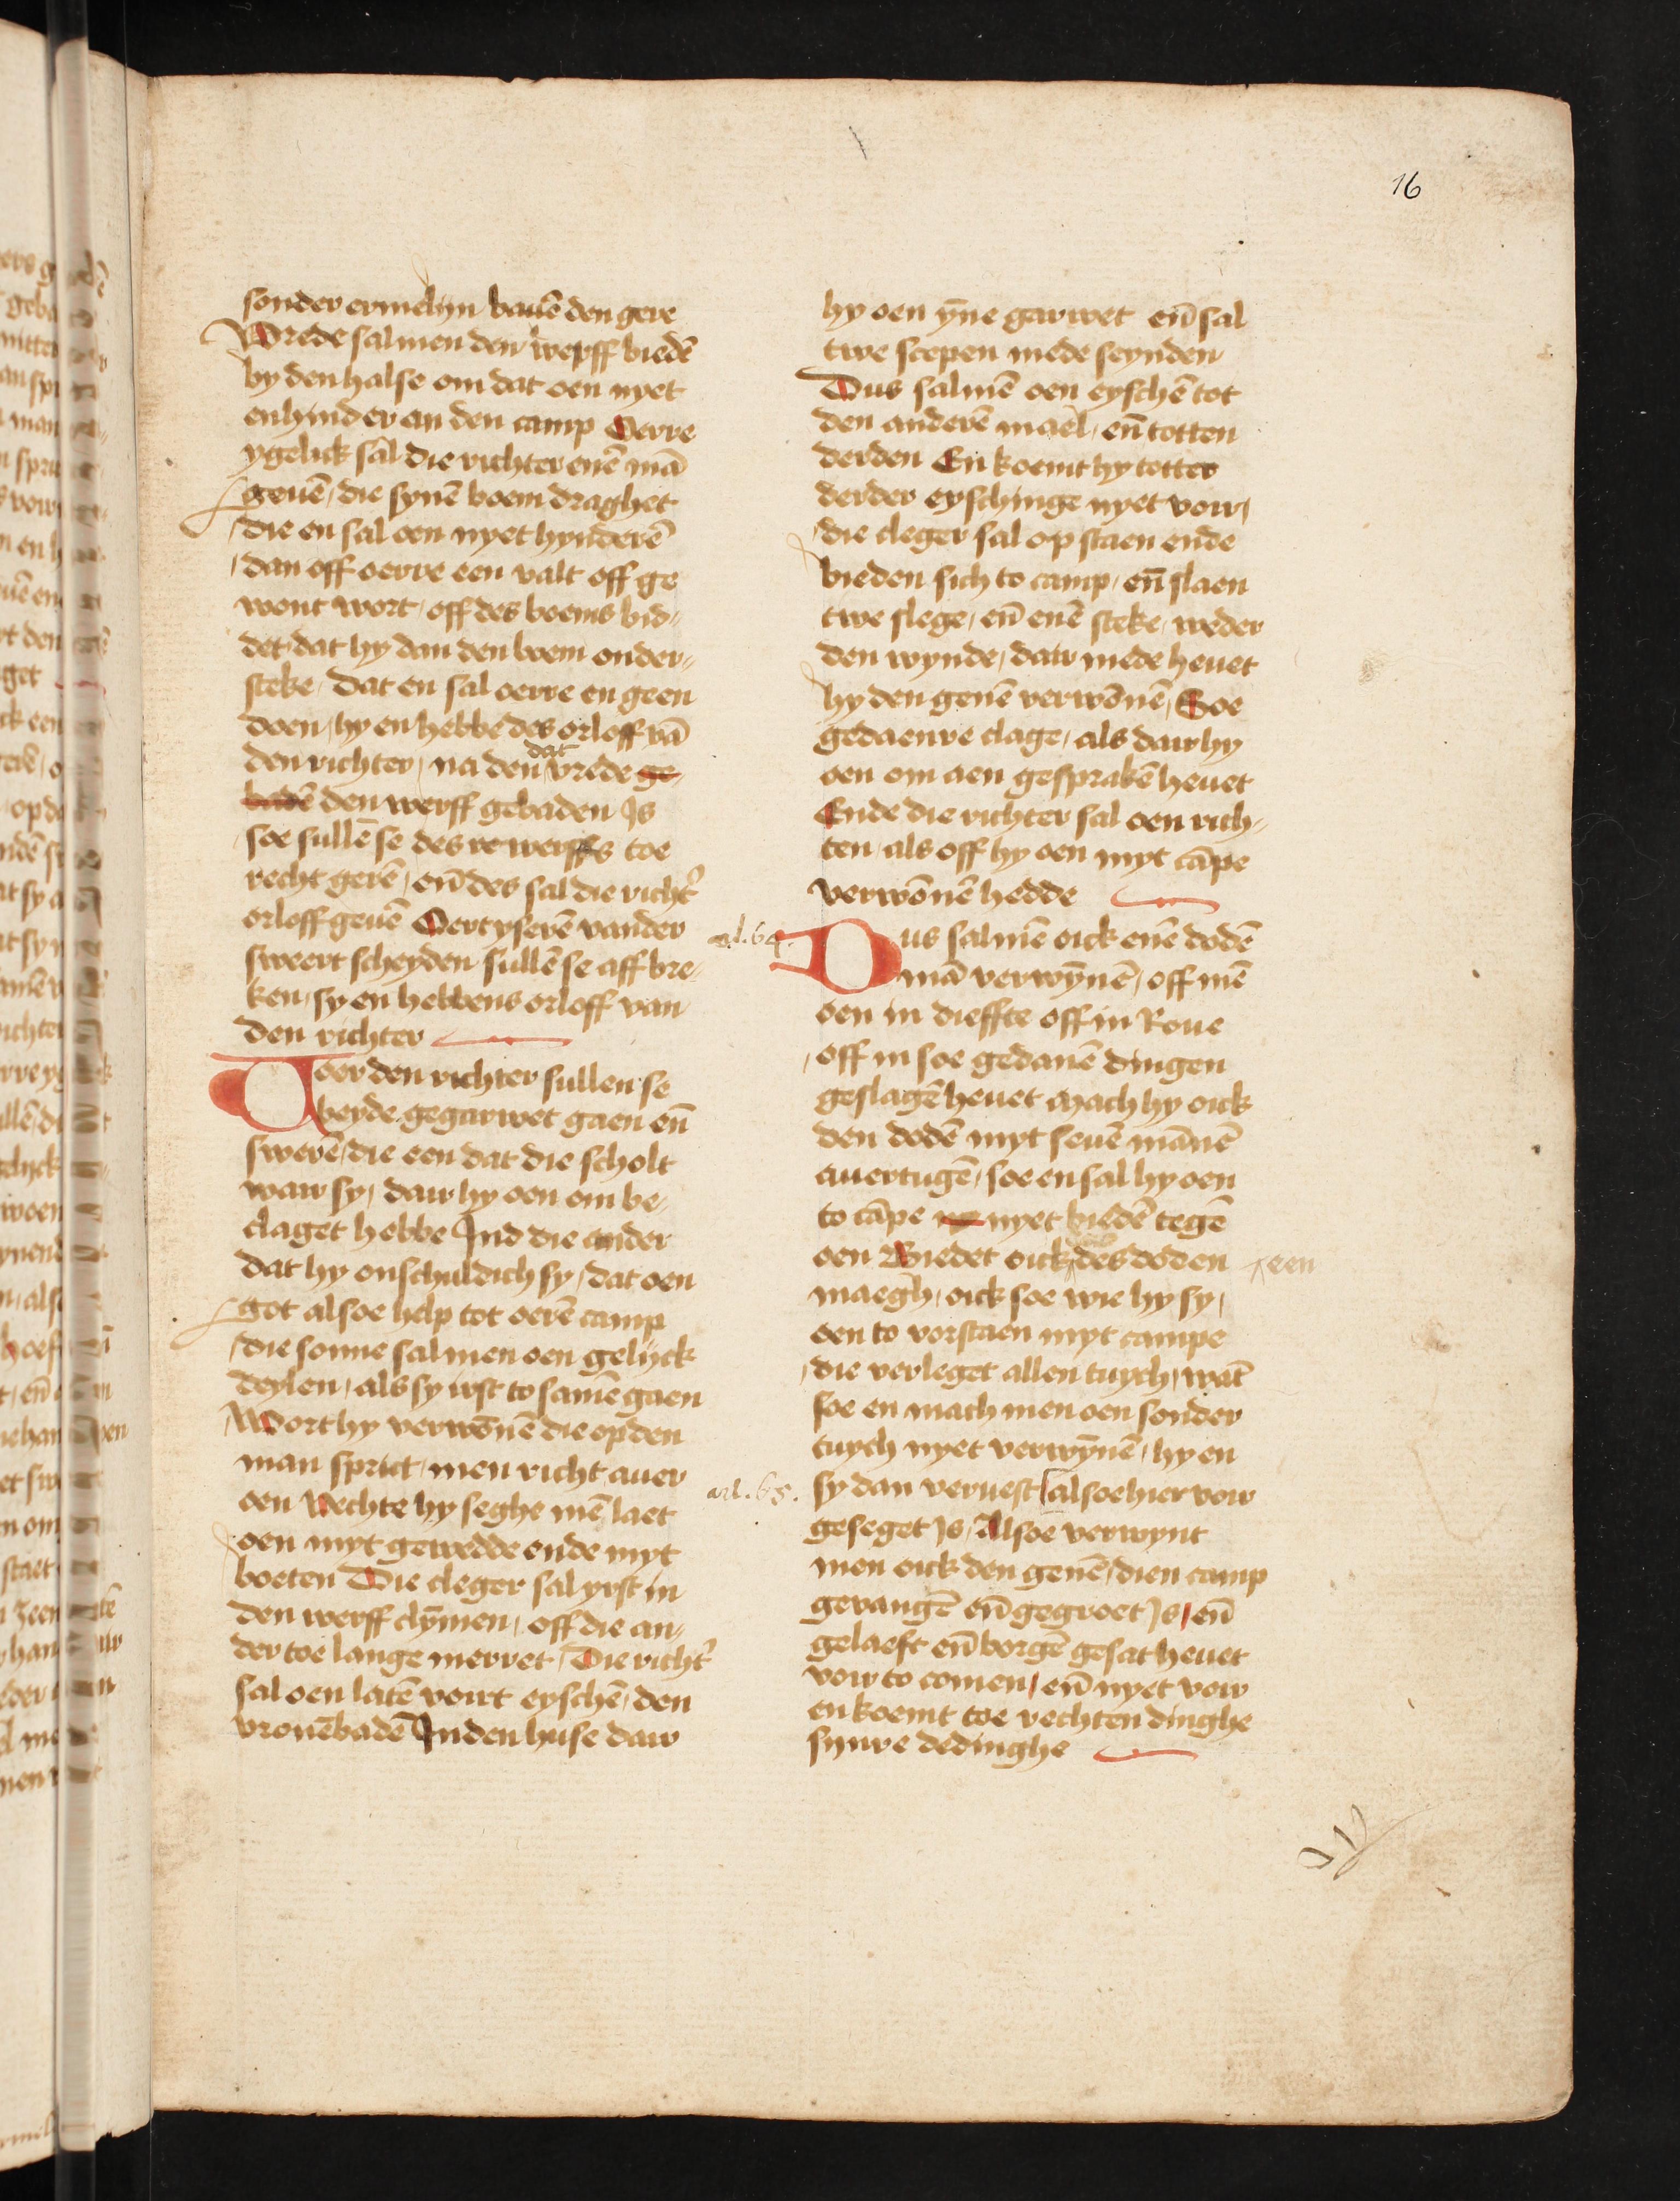 16
sonder ermelyn bauē den gere
Vrede sal men den werff biedē
by den halse om dat oen nyet
enhinder an den camp Oerre
ygelick sal die richter enē mā
geuē / die synē boem draghet
die en sal oen nyet hynderē
dan off oerre een valt off ge
wont wort / off des boems bid-
det dat hy dan den boem onder-
steke / dat en sal oerre en geen
doen / hy en hebbe des orloff vā
den richter / na den dat vrede ge-
badē den werff gebaden Js
soe sullē se des re werffs toe
recht gerē / eñ des sal die richt'
orloff geuē Oert yserē vander
sweert scheyden sullē se aff bre-
ken / sy en hebbens orloff van
den richter
Voer den richter sullen se
beyde gegarwet gaen eñ
swerē / die een dat die scholt
waer sy / daer hy oen om be-
claget hebbe Jnd die ander
dat hy onschuldich sy / dat oen
got alsoe help tot oerē camp
die sonne sal men oen gelijck
deylen / als sy irst to samē gaen
Wort hy verwōnē die op den
man sprict / men richt auer
oen Vechte hy seghe mē laet
oen myt gewedde ende myt
boeten Die cleger sal yrst in
den werff clȳmen / off die an-
der toe lange merret / Die richt'
sal oen latē voirt eyschē / den
vronēbadē Jnden huse daer
hy oen ȳne garwet eñ sal
twe scepen mede seynden
Dus salmē oen eyschē tot
den anderē mael / eñ totten
derden En koemt hy totter
derder eyschinge nyet voir /
die cleger sal op staen ende
bieden sich to camp / eñ slaen
twe slege / eñ enē steke / weder
den wynde / daer mede heuet
hy den genē verwōnē / Soe
gedaenre clage / als daer hy
oen om aen gesprakē heuet
Ende die richter sal oen rich-
ten / als off hy oen myt cāpe
verwōnē hedde
al. 64.
Dus salmē oick enē dodē
mā verwȳnē / off mē
oen in dieffte off in Roue
off in soe gedanē dingen
geslagē heuet mach hy oick
den dodē myt seuē mānē
auertugē / soe en sal hy oen
to cāpe nyet biedē tegē
oen Biedet oick des doden een
maegh / oick soe wie hy sy /
oen to vorstaen myt campe
die verleget allen tuych / wāt
soe en mach men oen sonder
tuych nyet verwȳnē / hy en
art. 65.
sy dan veruest alsoe hier voir
geseget Js / Alsoe verwynt
men oick den genē / dien camp
gevangē eñ gegroet Js / eñ
gelaeft eñ borgē gesat heuet
voir to comen / eñ nyet voir
en koemt toe rechten dinghe
synre dedinghe